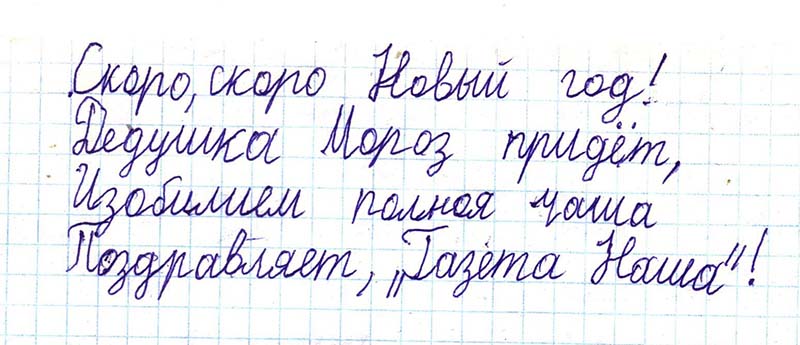 Скоро, скоро Новый год!
Дедушка Мороз придёт,
Изобилием полная чаша
Поздравляет, „Газета Наша"!